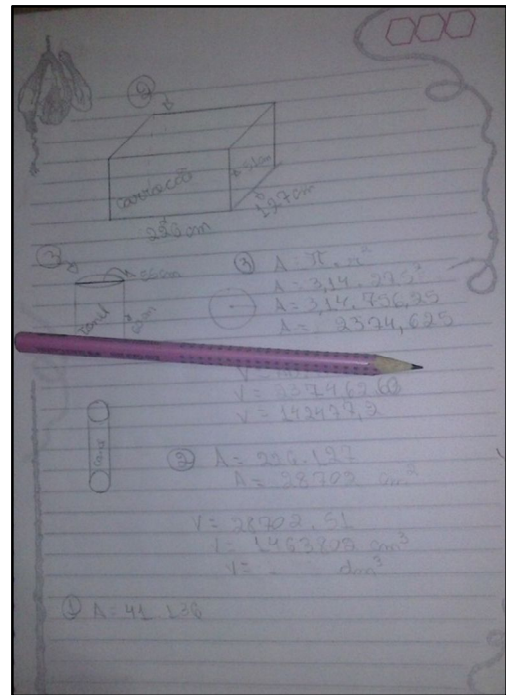 ②
carroção
51cm
127cm
226cm
③
55cm
60cm
③ A = π . r²
A = 3,14 . 27,5²
A = 3,14 . 756,25
A = 2374,625
V = 2374,62.60
V = 142477,2
② A = 226.127
A = 28702 cm²
V = 28702.51
V = 1463802 cm³
V = dm³
① A = 41.138